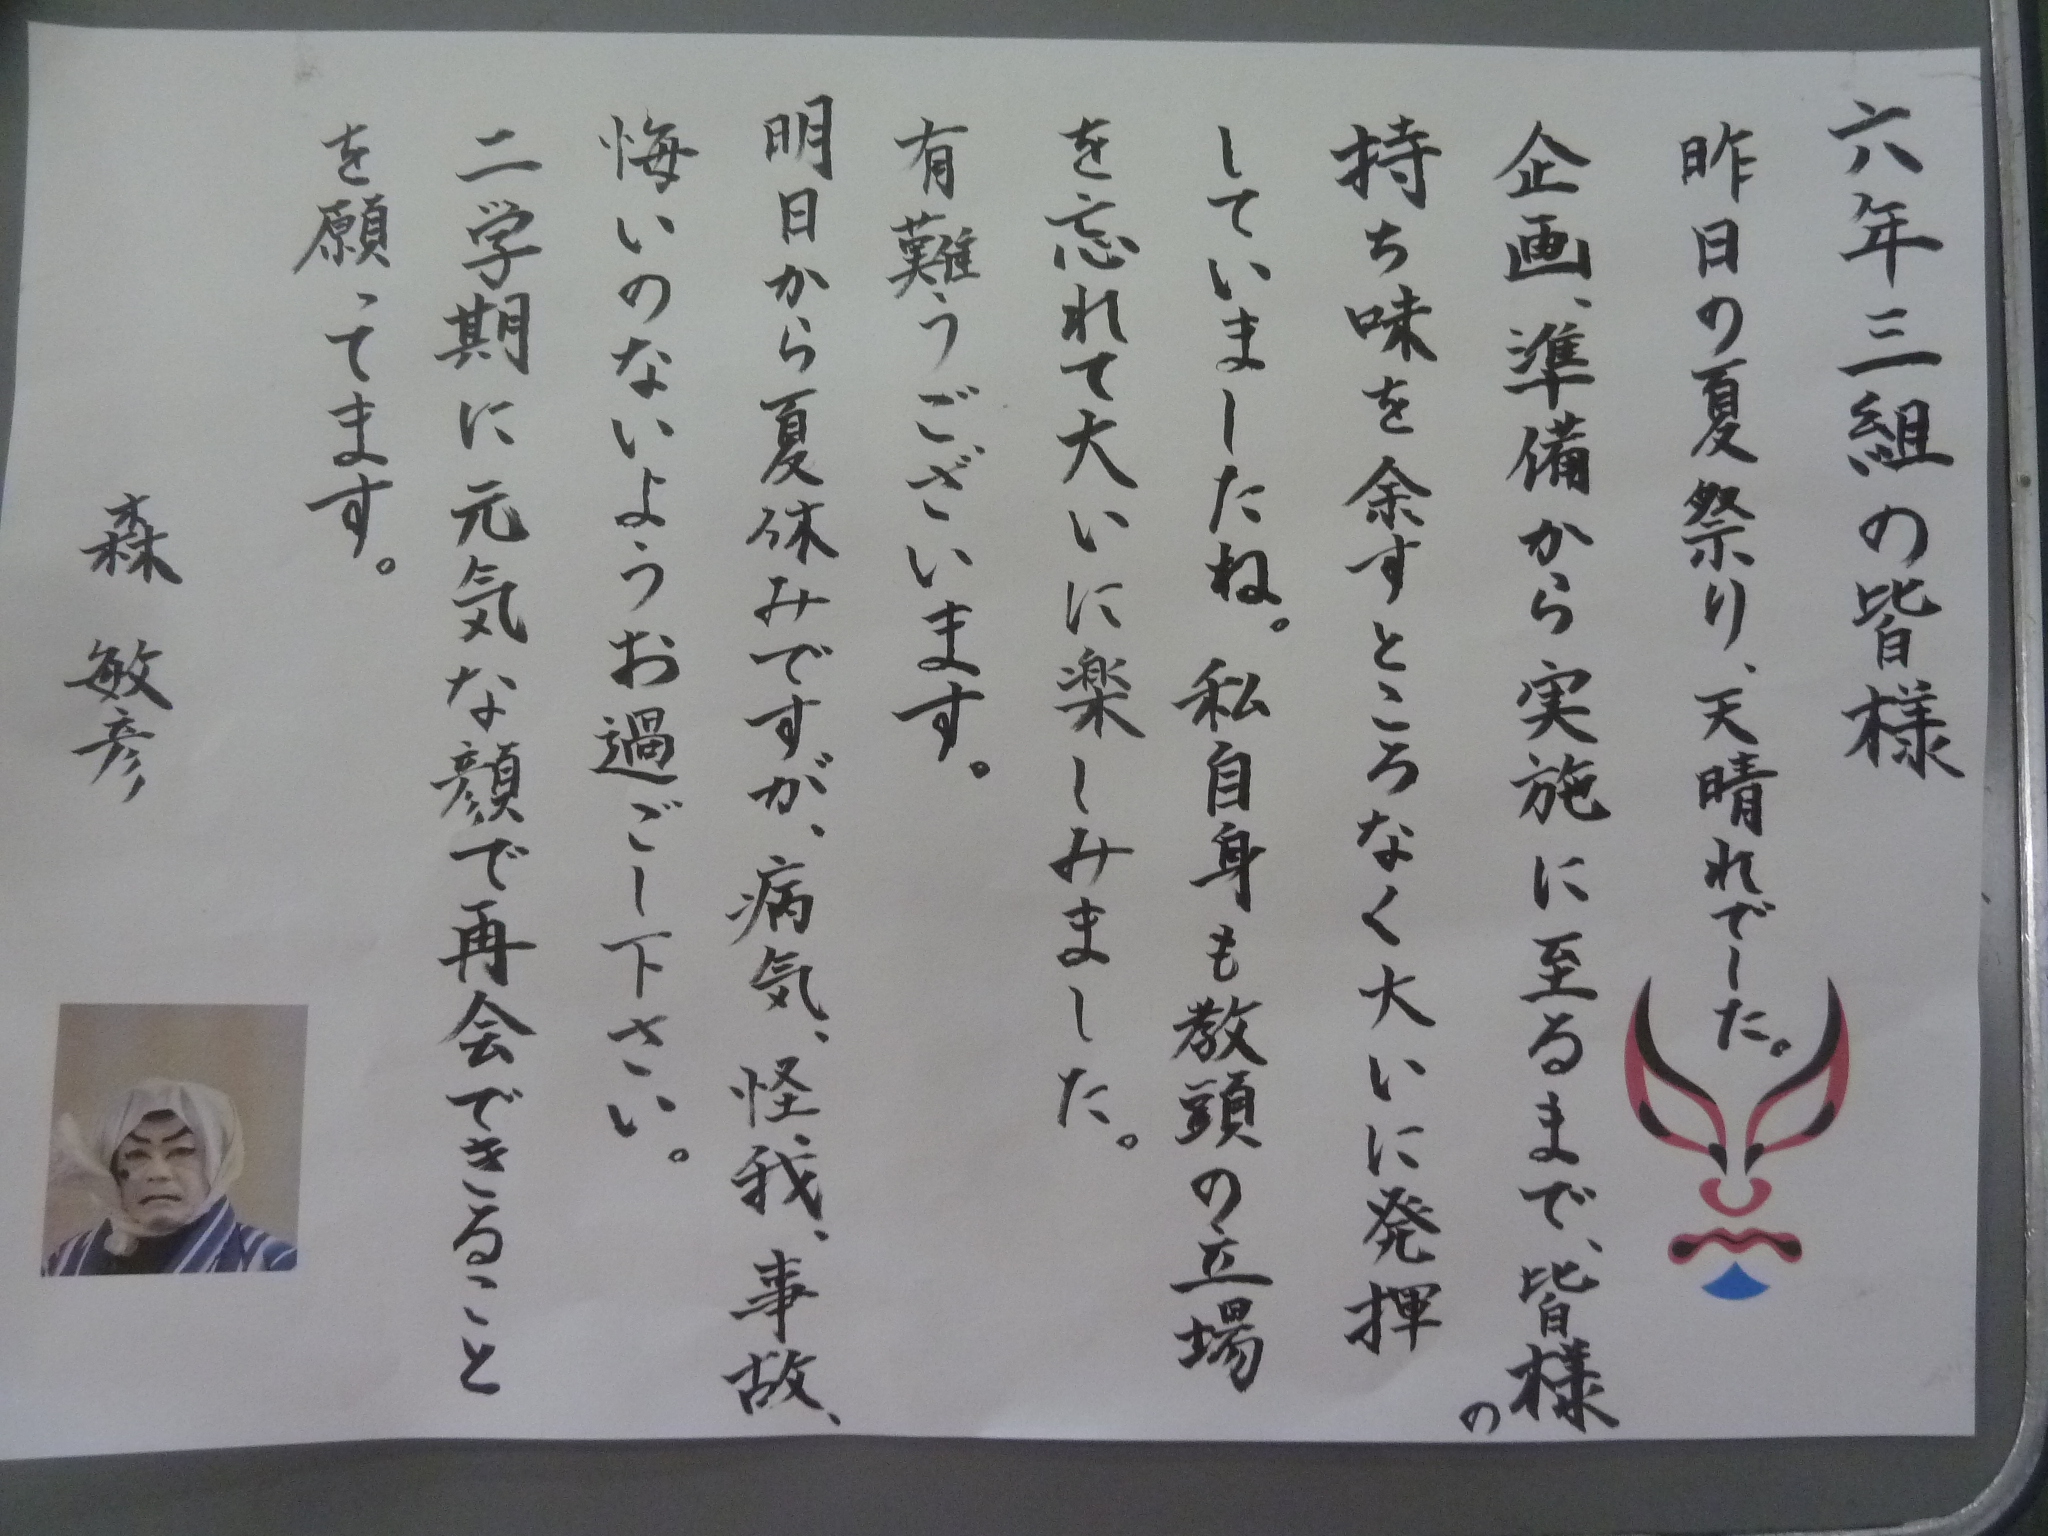 六年三組の皆様
昨日の夏祭り、天晴れでした。
企画、準備から実施に至るまで、皆様の
持ち味を余すところなく大いに発揮
していましたね。私自身も教頭の立場
を忘れて大いに楽しみました。
有難うございます。
明日から夏休みですが、病気、怪我、事故、
悔いのないようお過ごし下さい。
二学期に元気な顔で再会できること
を願ってます。
森 敏彦